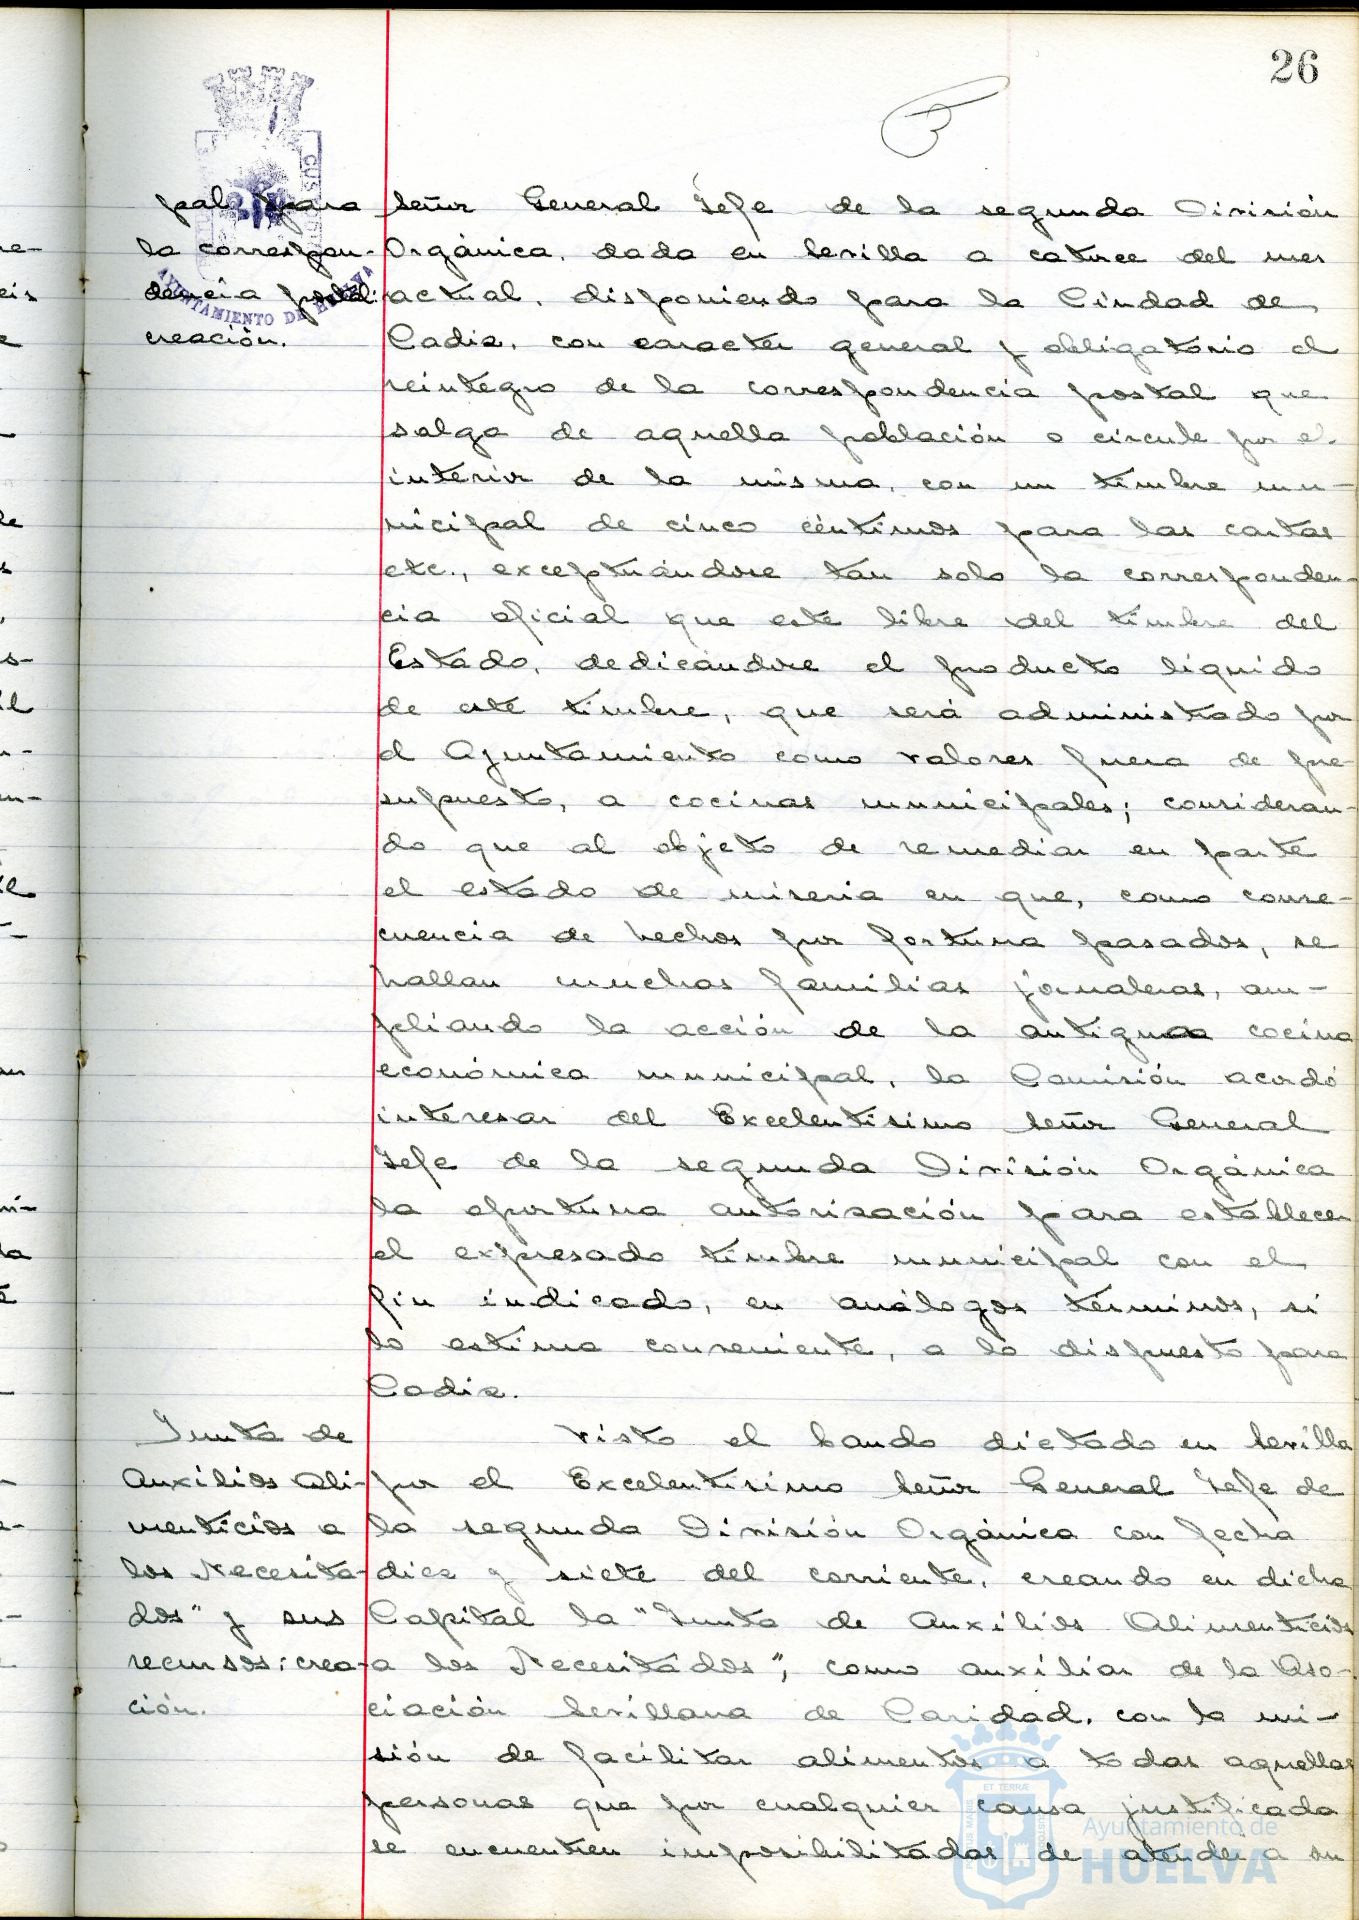 26
pal para
la correspon-
dencia postal:
creación.
Señor General Jefe de la segunda División
Orgánica, dada en Sevilla a catorce del mes
actual, disponiendo para la Ciudad de
Cadiz, con caracter general y obligatorio el
reintegro de la correspondencia postal que
salga de aquella población o circule por el
interior de la misma, con un timbre mu-
nicipal de cinco céntimos para las cartas
etc., exceptuándose tan solo la corresponden-
cia oficial que este libre del timbre del
Estado, dedicándose el producto líquido
de este timbre, que será administrado por
el Ayuntamiento como valores fuera de pre-
supuesto, a cocinas municipales; consideran-
do que al objeto de remediar en parte
el estado de miseria en que, como conse-
cuencia de hechos por fortuna pasados, se
hallan muchas familias jornaleras, am-
pliando la acción de la antigua cocina
económica municipal, la Comisión acordó
interesar del Excelentísimo Señor General
Jefe de la segunda División Orgánica
la oportuna autorización para establecer
el expresado timbre municipal con el
fin indicado, en análogos términos, si
lo estima conveniente, a lo dispuesto para
Cadiz.
Junta de
Auxilios Ali-
menticios a
los Necesita-
dos" y sus
recursos: crea-
ción.
Visto el bando dictado en Sevilla
por el Excelentísimo Señor General Jefe de
la segunda División Orgánica con fecha
diez y siete del corriente, creando en dicha
Capital la "Junta de Auxilios Alimenticios
a los Necesitados", como auxiliar de la Aso-
ciación Sevillana de Caridad, con la mi-
sión de facilitar alimentos a todas aquellas
personas que por cualquier causa justificada
se encuentren imposibilitadas de atender a su
AYUNTAMIENTO DE HUELVA
Ayuntamiento de
HUELVA